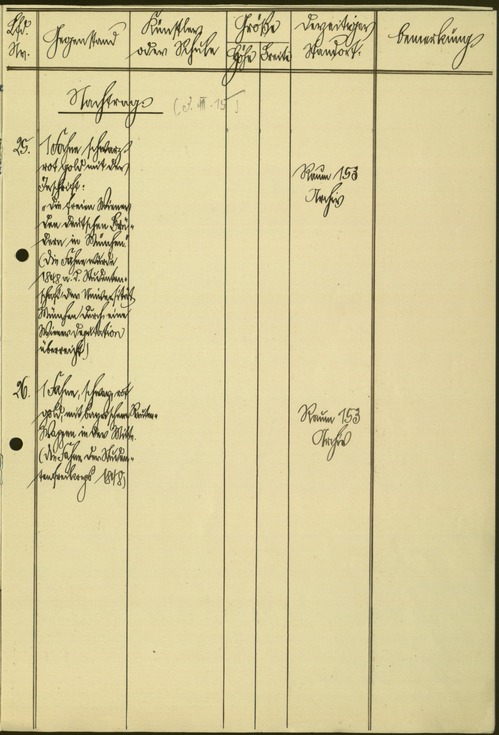 Lfd. Nr.
Gegenstand
Künstler oder Schule
Größe
Höhe
Breite
Derzeitiger Standort.
Bemerkung
Nachtrag
25.
1 Fahne schwarz
rot gold mit der
Inschrift:
"Die freien Wiener
den deutschen Brü-
dern in München"
(die Fahne wurde
1848 v. d. Studenten-
schaft der Universität
München durch eine
Wiener Deputation
überreicht)
Raum 153
Archiv
26.
1 Fahne, schwarz rot
gold, mit bayerischem Rauten-
Wappen in der Mitte.
(die Fahne des Studen-
tenfreikorps 1848)
Raum 153
Archiv